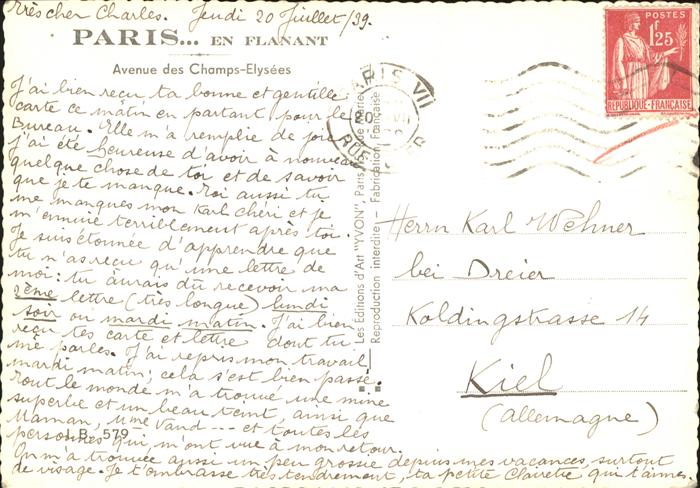 Très cher Charles. Jeudi 20 Juillet/39.
PARIS... EN FLANANT
Avenue des Champs-Elysées
J'ai bien reçu ta bonne et gentille
carte ce matin en partant pour le
Bureau. Elle m'a remplie de joie
j'ai été heureuse d'avoir à nouveau
quelque chose de toi et de savoir
que je te manque. Toi aussi tu
me manques mon Karl chéri et je
m'ennuie terriblement après toi.
Je suis étonnée d'apprendre que
tu n'as reçu qu'une lettre de
moi: tu aurais dû recevoir ma
2ème lettre (très longue) lundi
soir ou mardi matin. J'ai bien
reçu tes carte et lettre dont tu
me parles. J'ai repris mon travail
mardi matin; cela s'est bien passé.
Tout le monde m'a trouvé une mine
superbe et un beau teint, ainsi que
Maman, Mme Vand--- et toutes les
personnes qui m'ont vue à mon retour.
I.B. 579
On m'a trouvée aussi un peu grossie depuis mes vacances, surtout
de visage. Je t'embrasse très tendrement, ta petite Clairette qui t'aime.
Les Editions d'Art "YVON", Paris
Reproduction interdite - Fabrication Française
PARIS VII
POSTES
1F25
REPUBLIQUE-FRANÇAISE
Herrn Karl Wehner
bei Dreier
Koldingstrasse 14
Kiel
(Allemagne)